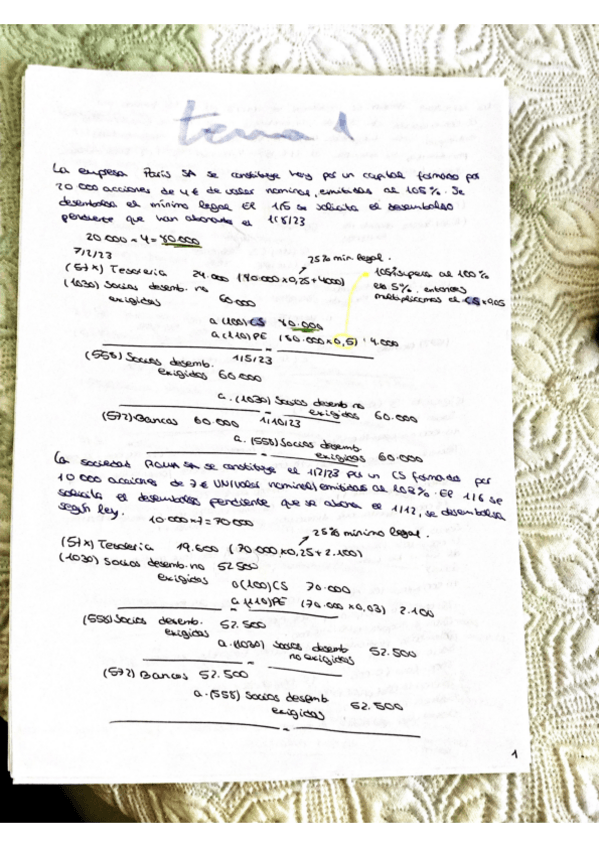 tema 1
La empresa Paris SA se constituye hoy por un capital formado por
20 000 acciones de 4 € de valor nominal, emitidas al 105%. Se
desembolsa el mínimo legal. El 1/5 se solicita el desembolso
pendiente que han abonado el 1/8/23
20.000 × 4 = 80.000
25% min. legal.
7/2/23
(57x) Tesorería 24.000 (80.000×0,25+4000)
105% supera al 100%
en 5%, entonces
multiplicamos el CS×0,05
(1030) Socios desemb. no
exigidos 60.000
a (100) CS 80.000
a (110) PE (80.000×0,5) 4.000
1/5/23
(558) Socios desemb.
exigidos 60.000
a. (1030) Socios desemb no
exigidos 60.000
1/10/23
(572) Bancos 60.000
a. (558) Socios desemb.
exigidos 60.000
La sociedad SA se constituye el 1/2/23 por un CS formado por
10 000 acciones de 7 € UNI(valor nominal) emitidas al 103%. El 1/6 se
solicita el desembolso pendiente que se abona el 1/12, se desembolsa
según ley.
10.000×7=70.000
25% mínimo legal.
(57x) Tesorería 19.600 (70.000×0,25+2.100)
(1030) Socios desemb. no 52.500
exigidos
a (100) CS 70.000
a. (110) PE (70.000×0,03) 2.100
(558) Socios desemb. 52.500
exigidos
a. (1030) Socios desemb
no exigidos 52.500
(572) Bancos 52.500
a. (558) Socios desemb
exigidos 52.500
1